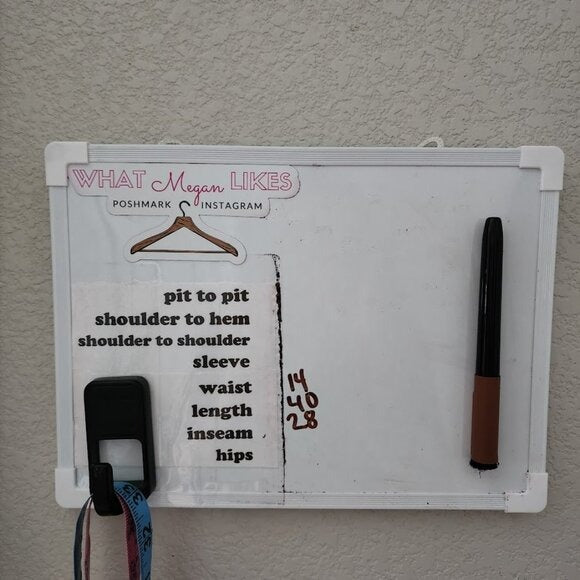 WHAT Megan LIKES
POSHMARK INSTAGRAM
pit to pit
shoulder to hem
shoulder to shoulder
sleeve
waist 14
length 40
inseam 28
hips